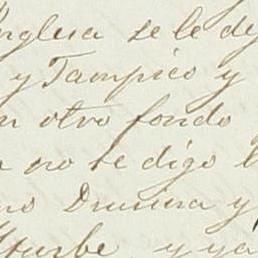 Inglesa se le de
y Tampico y
otro fondo
no te digo l
no Druina y
Yturbe y ya